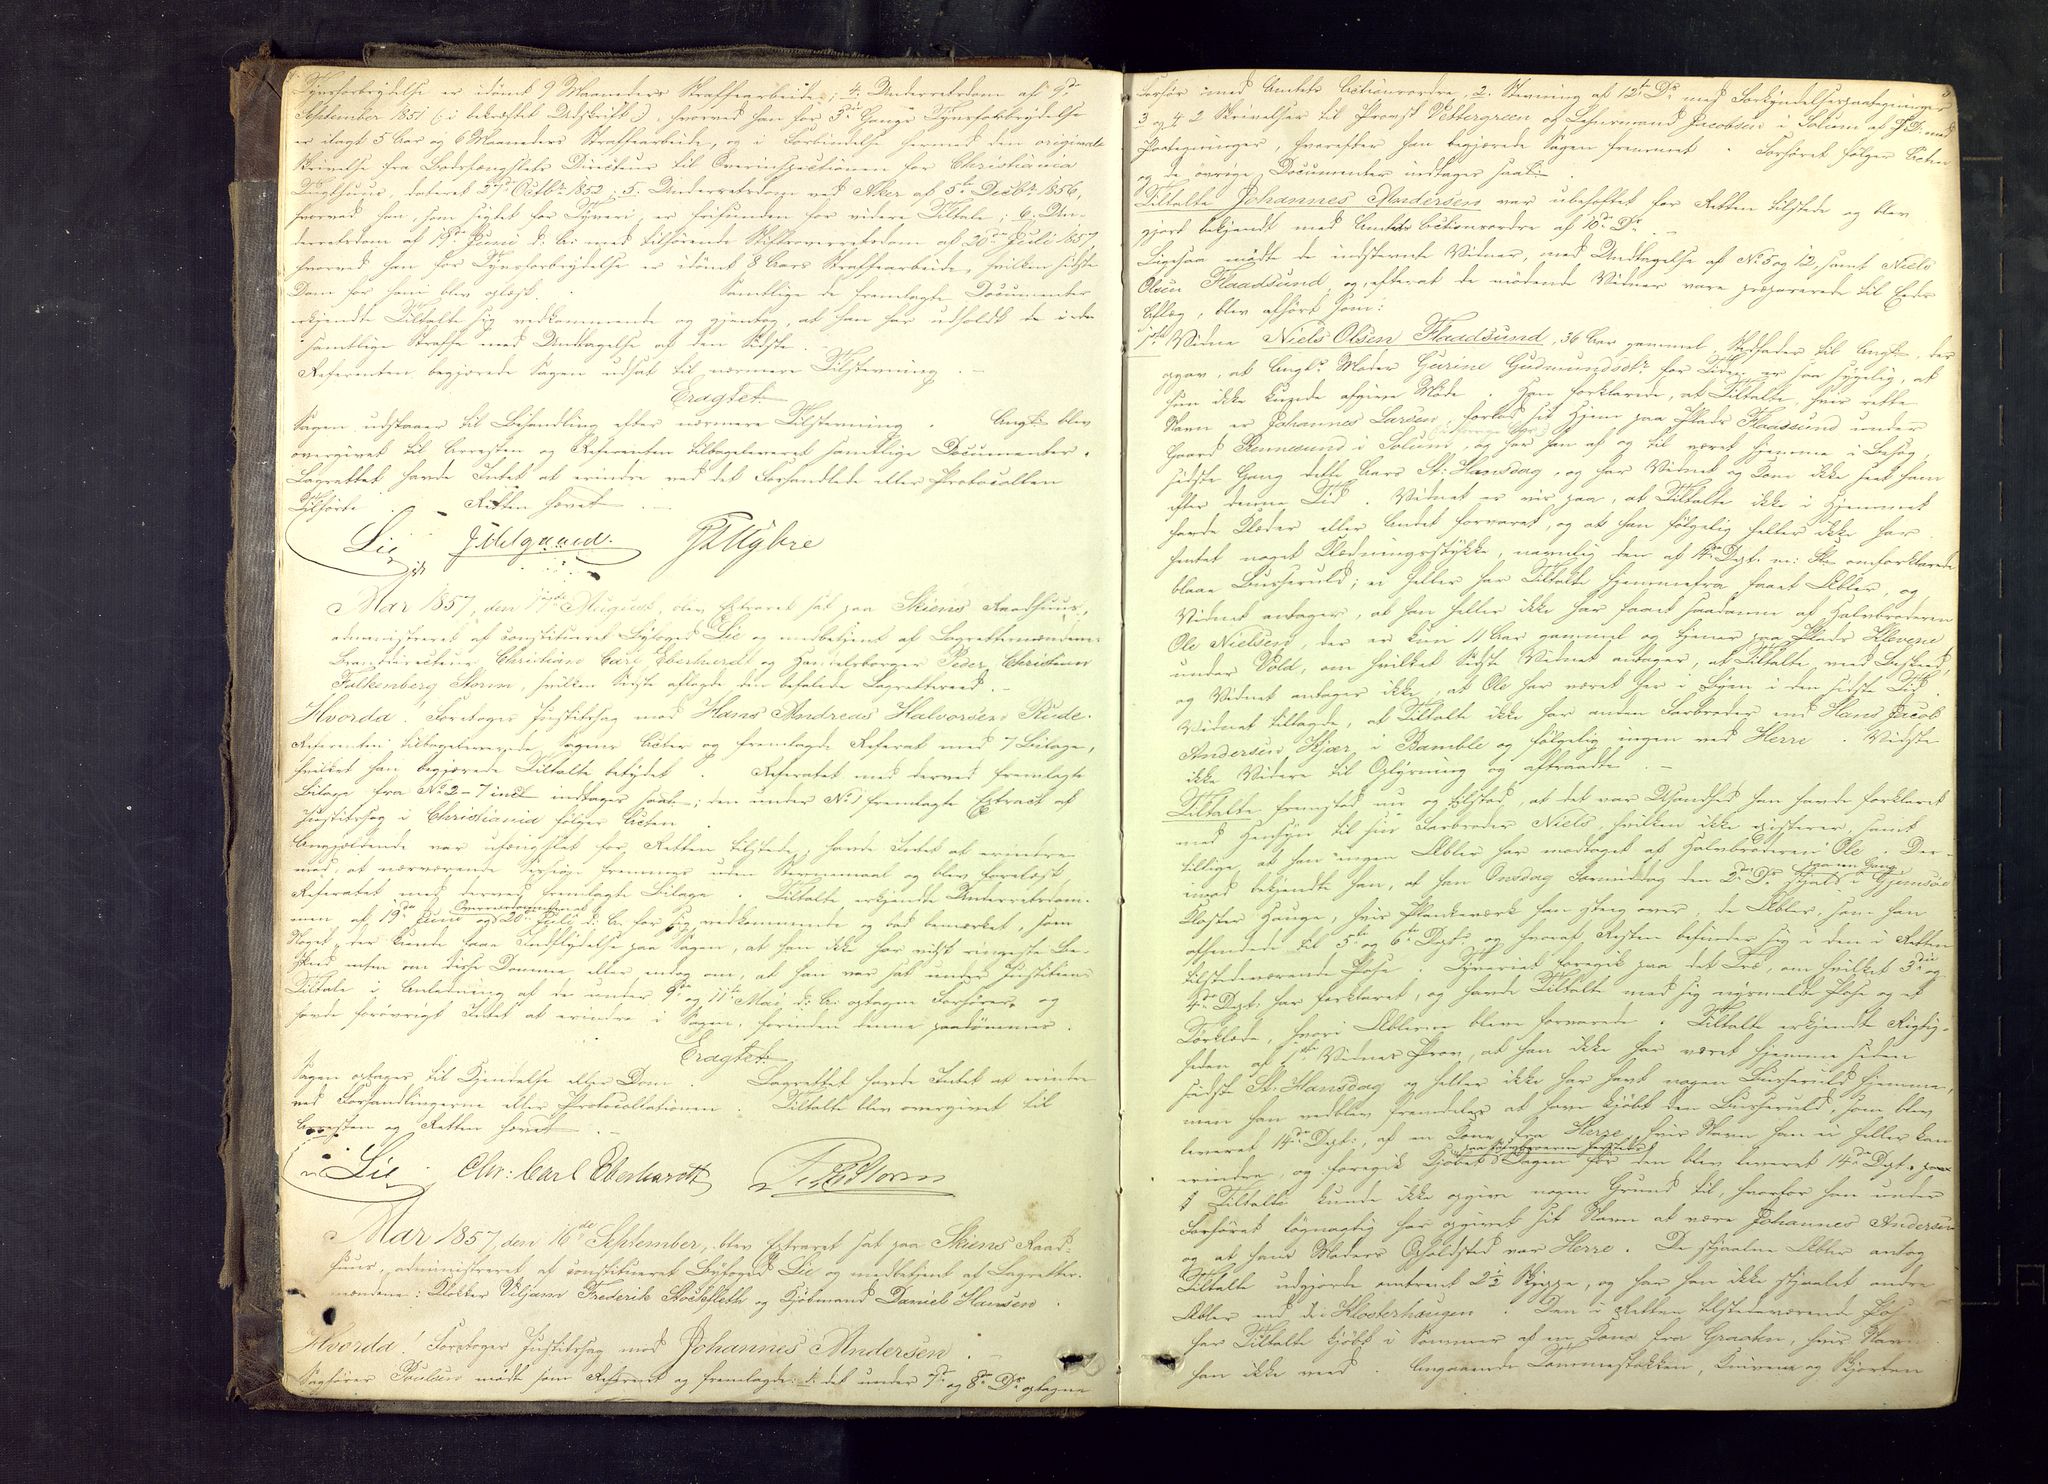 Tyvsforbrydelse er idømt 9 Maaneders Strafarbeide; 4. Underretsdom af 9de
September 1851 (i bekræftet Udskrift), hvorved han for 3die Gang Tyvsforbrydelse
er ilagt 5 Aar og 6 Maaneders Strafarbeide, og i Forbindelse hermed den originale
Skrivelse fra Bodsfængslets Directeur til Overinspectionen for Christiania
Tugthuus, dateret 27 Octbr. 1852; 5. Underretsdom ved Aker af 5te Decbr. 1856,
hvorved han, som sigtet for Tyveri, er frifunden for videre Tiltale; 6. Un-
derretsdom af 19de Juni d. A. med tilhørende Stiftsoverretsdom af 20de Juli 1857,
hvorved han for Tyvsforbrydelse er idømt 8 Aars Strafarbeide, hvilken sidste
Dom for ham blev oplæst. Samtlige de fremlagte Documenter
erkjendte Tiltalte sig vedkommende og gjentog, at han har udholdt de i de
samtlige Straffe med Undtagelse af den Sidste.
Referenten begjærede Sagen udsat til nærmere Tilstevning.
Eragtet:
Sagen udstaaer til Behandling efter nærmere Tilstevning. Angj. blev
overgivet til Arresten og Referenten tilbageleveret samtlige Documenter.
Lagrettet havde Intet at erindre ved det Forhandlede eller Protocollen
Tilførte. Retten hævet.
Lie
Aar 1857, den 17de August, blev Extraret sat paa Skiens Raadhuus,
administreret af constitueret Byfoged Lie og medbetjent af Lagrettemændene:
Branddirecteur Christian Carl Eberhardt og Handelsborger Peder Christian
Falkenberg Storm, hvilken Sidste aflagde den befalede Lagretteeed.
Hvorda! Foretoges Justitssag mod Hans Andreas Halvorsen Rude.
Referenten tilbageleverede Sagens Acter og fremlagde Referat med 7 Bilage,
hvilket han begjærede Tiltalte betydet. Referatet med derved fremlagte
Bilage fra No 2-7 incl. indtages saal.; den under No 1 fremlagte Extract af
Justitssag i Christiania følger Acten.
Angjældende var ufængslet for Retten tilstede, havde Intet at erindre
mod, at nærværende Session fremmes uden Stevnemaal og blev forelæst
Referatet med derved fremlagte Bilage. Tiltalte erkjendte Underretsdom-
men af 19de Juni og Overretsdommen af 20de Juli d. A. for sig vedkommende og bad bemærket, som
Noget, der kunde faae Indflydelse paa Sagen, at han ikke har vidst ringeste Be-
sked om disse Domme, eller endog om, at han var sat under Justitiens
Tiltale i Anledning af de under 9de og 11te Mai d. A. optagne Forhører, og
havde forøvrigt Intet at erindre i Sagen, forinden denne paadømmes.
Eragtet:
Sagen optages til Kjendelse eller Dom. Lagrettet havde Intet at erindre
ved Forhandlingerne eller Protocollationen. Tiltalte blev overgivet til
Arresten og Retten hævet.
Lie Chr: Carl Eberhardt P. F. Storm
Aar 1857, den 16de September, blev Extraret sat paa Skiens Raad-
huus, administreret af constitueret Byfoged Lie og medbetjent af Lagrette-
mændene: Klokker Viljam Frederik Stockfleth og Kjøbmand Daniel Hansen.
Hvorda! Foretoges Justitssag mod Johannes Andersen.
Sagfører Poulsen mødte som Referent og fremlagde: 1. det under 7de og 8de Ds. optagne
Forhør med Amtets Actionsordre, 2. Stevning af 12te Ds. med Forkyndelsespaategninger
3 og 4 2 Skrivelser til Provst Vettergreen og Lehnsmand Jacobsen i Solum af f. D. med
Paategninger, hvorefter han begjærede Sagen fremmet. Forhøret følger Acten
og de øvrige Documenter indtages saal.
Tiltalte Johannes Andersen var ubehæftet for Retten tilstede og blev
gjort bekjendt med Amtets Actionsordre af 10de Ds.
Ligesaa mødte de indstevnte Vidner, med Undtagelse af No 5 og 12, samt Niels
Olsen Flaadsund, og, efterat de mødende Vidner vare præparerede til Eeds
Aflæg, blev afhørt som:
1ste Vidne Niels Olsen Flaadsund, 36 Aar gammel, Stedfader til Angj., der
opgav, at Angj.s Moder Gurine Gudmundsdtr. for Tiden er saa sygelig, at
hun ikke kunde afgive Møde. Han forklarede, at Tiltalte, hvis rette
Navn er Johannes Larsen, forlod sit Hjem paa Plads Flaadsund under
Gaard Rennesund i Solum, og har han af og til været hjemme i Besøg,
sidste Gang dette Aars St. Hansdag, og har Vidnet og Kone ikke seet ham
efter denne Tid. Vidnet er vis paa, at Tiltalte ikke i Hjemmet
havde Klæder eller Andet forvaret, og at han følgelig heller ikke har
hentet noget Klædningsstykke, navnlig den af 14de Dpt. omforklarede
blaae Buserul; ei heller har Tiltalte hjemmefra faaet Æbler, og
Vidnet antager, at han heller ikke har faaet saadanne af Halvbroderen
Ole Nielsen, der er kun 11 Aar gammel og tjener paa Plads Klevene
under Vold, om hvilket Sidste Vidnet antager, at Tiltalte veed Besked,
og Vidnet antager ikke, at Ole har været her i Byen i den sidste Tid.
Vidnet tilføgde, at Tiltalte ikke har anden Farbroder end Hans Jacob
Andersen Kjær, i Bamble og følgelig ingen ved Herre. Vidste
ikke Videre til Oplysning og aftraadte.
Tiltalte fremstod nu og tilstod, at det var Usandhed han havde forklaret
med Hensyn til sin Farbroder Niels, hvilken ikke existerer, samt
tillige at han ingen Æbler har modtaget af Halvbroderen Ole. Der-
imod bekjendte han, at han Onsdag Formiddag den 2den Ds. stjal paa een Gang i Gjemsø
Kloster Hauge, hvis Plankeværk han steg over, de Æbler, som han
afhændede til 5te og 6te Dpt. og hvoraf Resten befinder sig i den i Retten
tilstedeværende Pose. Tyveriet foregik paa det Træ, om hvilket 3die og
4de Dpt. har forklaret, og havde Tiltalte med sig nysmeldte Pose og et
Tørklæde, hvori Æblerne bleve forvarede. Tiltalte erkjendte Rigtig-
heden af 1ste Vidnes Prov, at han ikke har været hjemme siden
sidste St. Hansdag og heller ikke har havt nogen Buserul hjemme,
men han vedblev fremdeles at have kjøbt den Buserul, som blev
leveret 14de Dpt., af en Kone fra Herre, hvis Navn han ei heller kan
erindre, og foregik Kjøbet Dagen før den blev leveret 14de Dpt.
Tiltalte kunde ikke opgive nogen Grund til, hvorfor han under
Forhøret løgnagtig har opgivet sit Navn at være Johannes Andersen
og at hans Moders Opholdssted var Herre. De stjaalne Æbler antog
Tiltalte udgjorde omtrent 2½ Skjeppe, og har han ikke stjaalet andre
Æbler end de i Klosterhaugen. Den i Retten tilstedeværende Pose
har Tiltalte kjøbt i Sommer af en Kone fra Graaten, hvis Navn
han ikke veed. Angaaende Tommestokken, Knivene og Skjorten